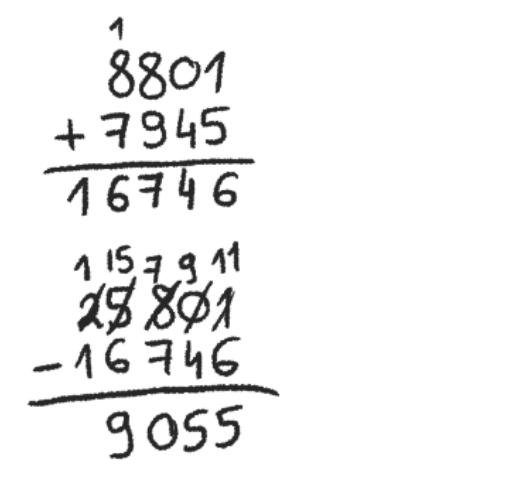 1
8801
+ 7945
16746
1 15 7 9 11
25801
- 16746
9055